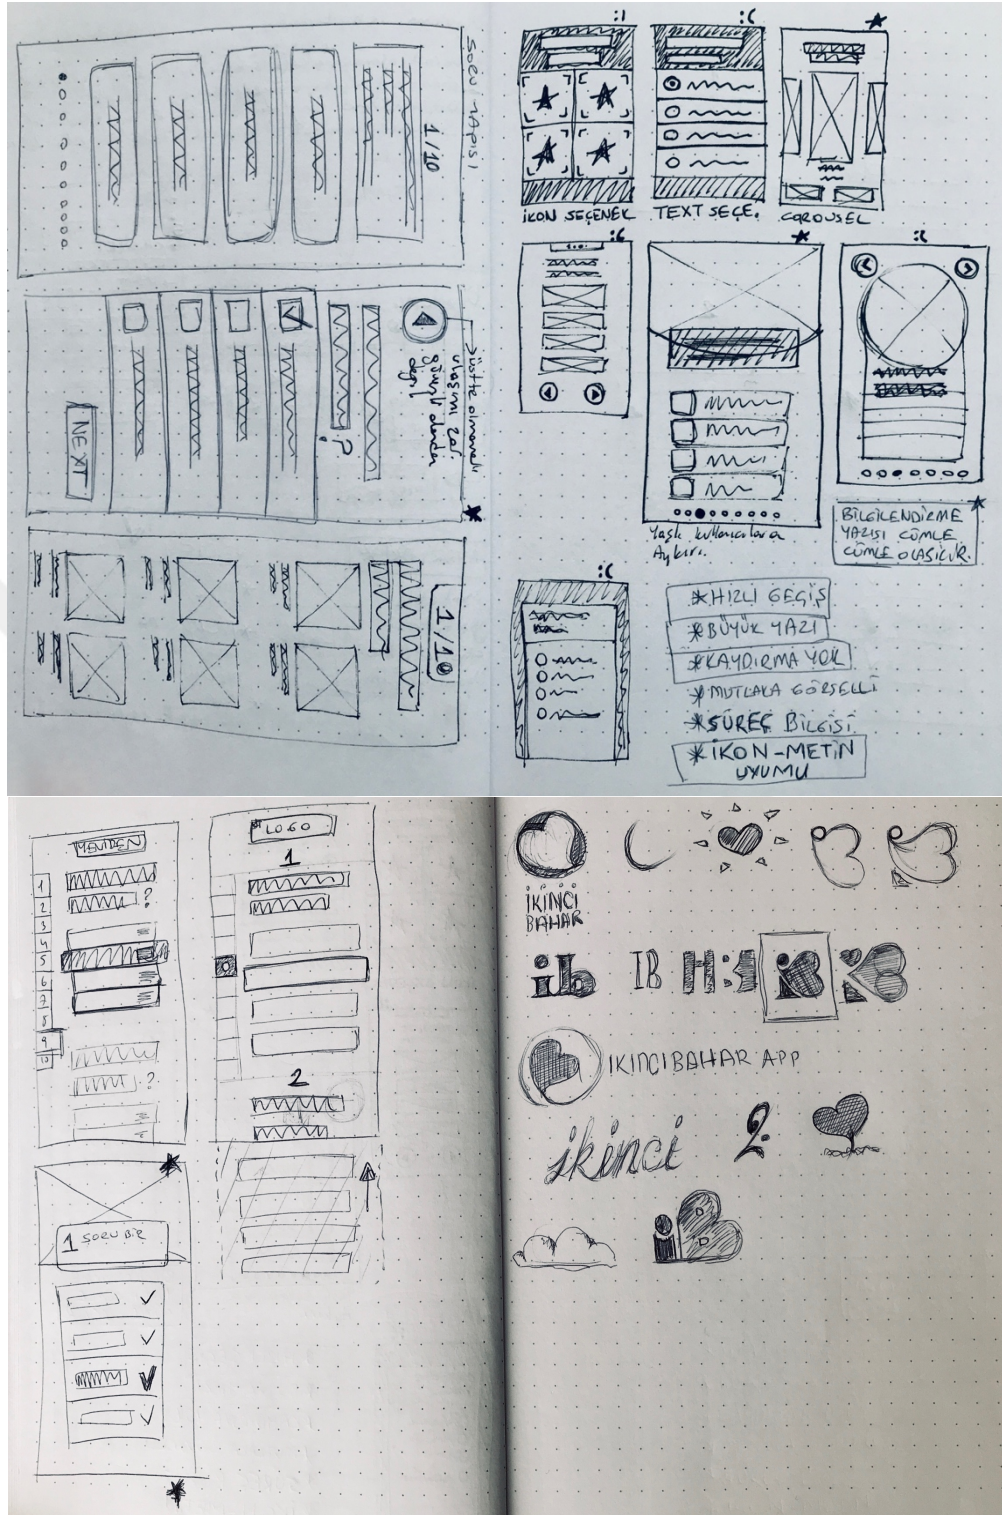 SORU YAPISI
1/10
üstte olmamalı
ulaşımı zor.
değil
?
NEXT
1/10
:|
:(
İKON SEÇENEK
TEXT SEÇE.
CAROUSEL
:(
:(
Yaşlı kullanıcılara
Aykırı.
BİLGİLENDİRME
YAZISI CÜMLE
CÜMLE OLABİLİR.
:(
*HIZLI GEÇİŞ
*BÜYÜK YAZI
*KAYDIRMA YOK
*MUTLAKA GÖRSELLİ
*SÜREÇ BİLGİSİ
*İKON-METİN
UYUMU
YENİDEN
1
2
3
4
5
6
7
8
9
10
?
?
LOGO
1
2
1 SORU BİR
İKİNCİ
BAHAR
ib
IB
İKİNCİBAHAR APP
ikinci
2.